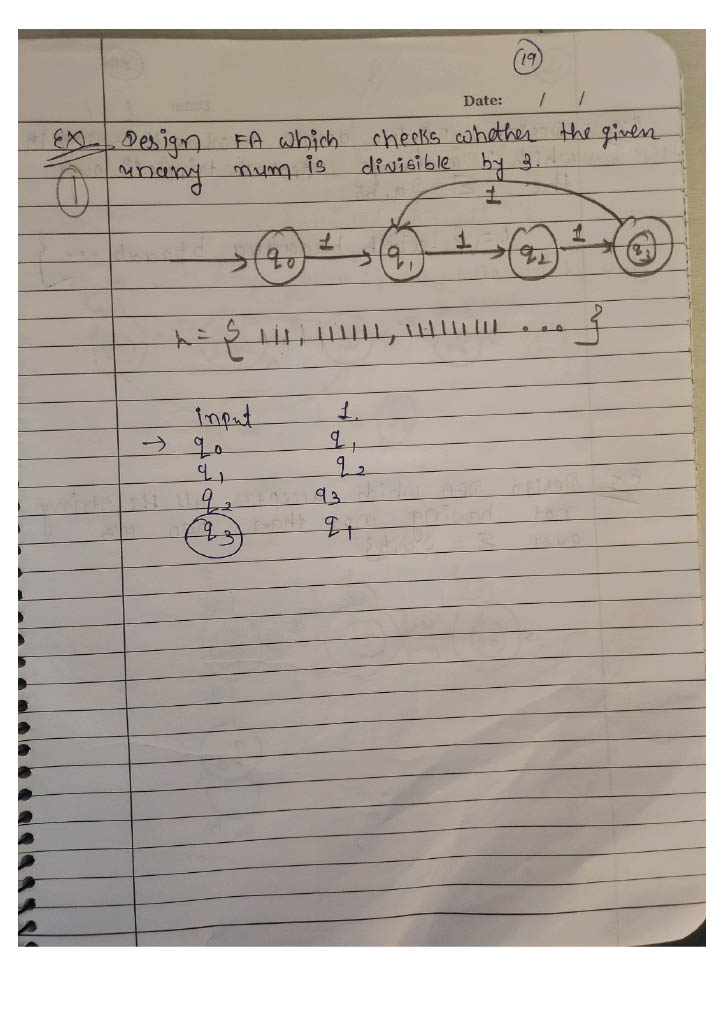 19
Date: / /
Ex Design FA which checks whether the given
1 unary num is divisible by 3.
1
q0 1 q1 1 q2 1 q3
L = { 111, 111111, 111111111 ... }
input 1.
→ q0 q1
q1 q2
q2 q3
q3 q1